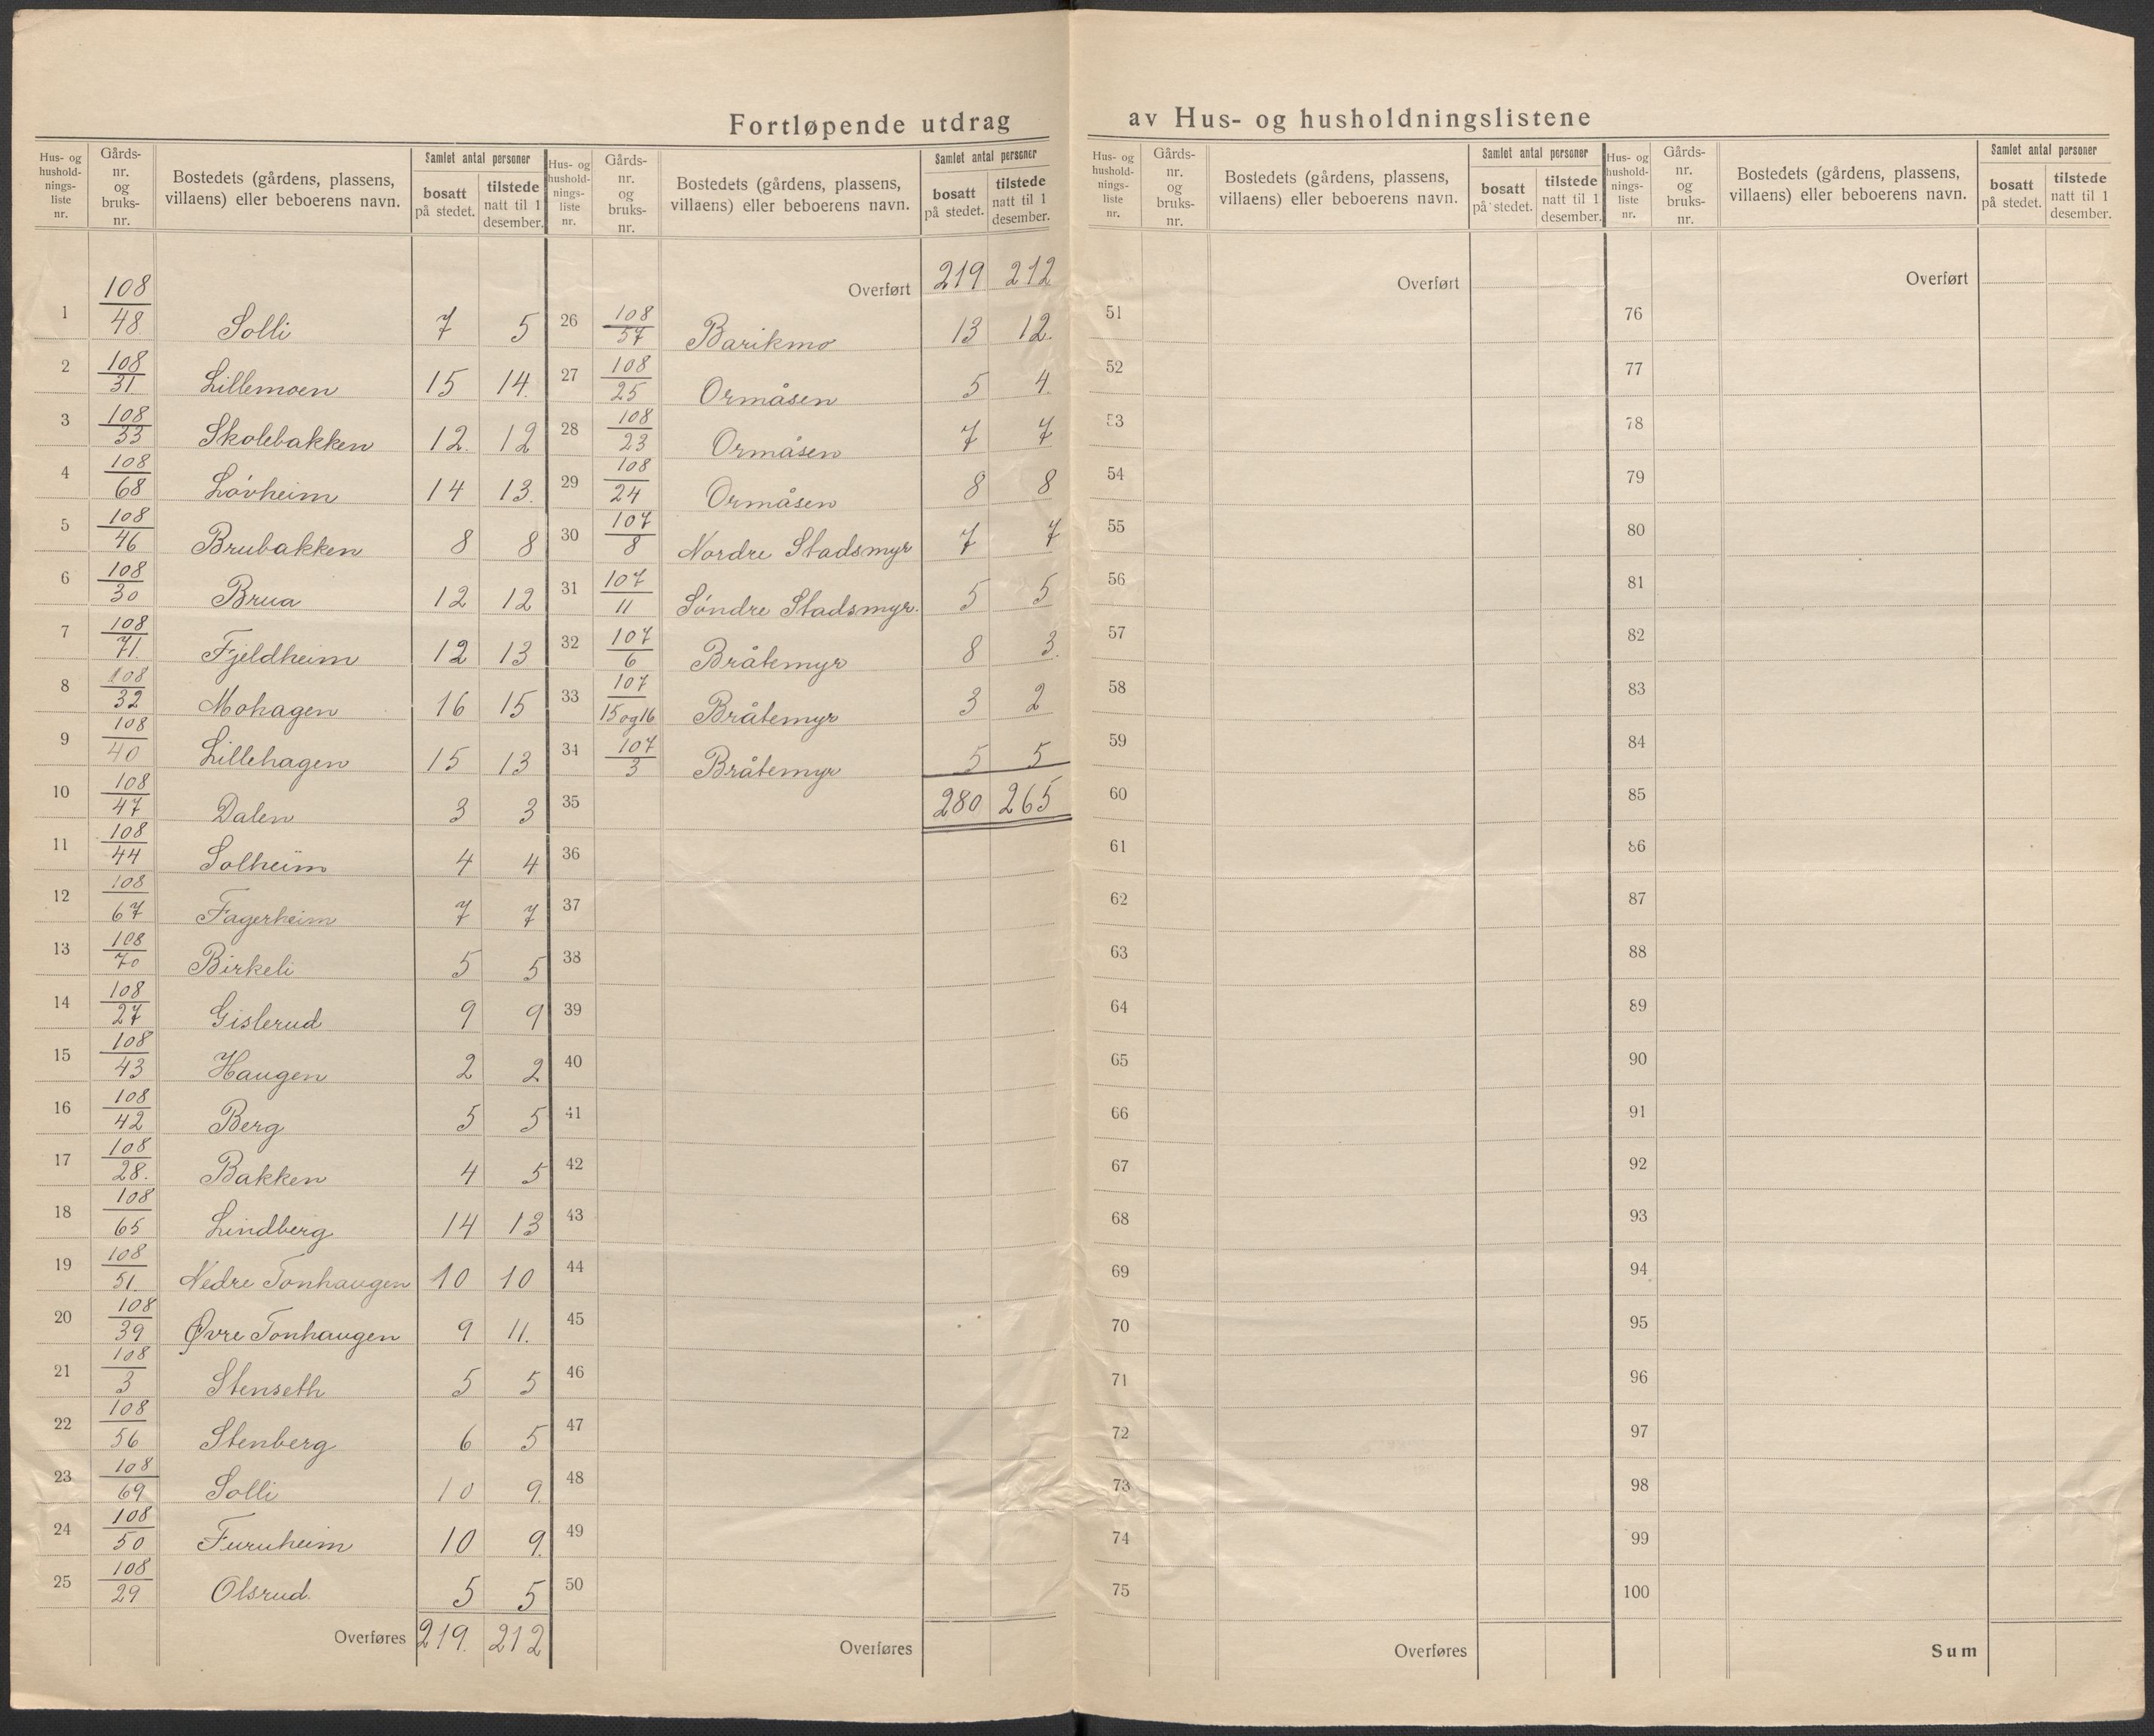 Fortløpende utdrag av Hus- og husholdningslistene
Hus- og hushold-nings-liste nr. | Gårds-nr. og bruks-nr. | Bostedets (gårdens, plassens, villaens) eller beboerens navn. | Samlet antal personer | bosatt på stedet. | tilstede natt til 1 desember.
1 108/48 Solli 7 5
2 108/31. Lillemoen 15 14.
3 108/33 Skolebakken 12. 12
4 108/68 Lövheim 14 13.
5 108/46 Brubakken 8 8
6 108/30 Brua 12 12
7 108/71. Fjeldheim 12 13
8 108/32 Mohagen 16 15
9 108/40 Lillehagen 15 13
10 108/47 Dalen 3 3
11 108/44 Solheim 4 4
12 108/67 Fagerheim 7 7
13 108/70 Birkeli 5 5
14 108/27 Gislerud 9 9
15 108/43 Haugen 2 2
16 108/42 Berg 5 5
17 108/28. Bakken 4 5
18 108/65 Lindberg 14 13
19 108/51. Nedre Tonhaugen 10 10
20 108/39 Øvre Tonhaugen 9 11.
21 108/3 Stenseth 5 5
22 108/56 Stenberg 6 5
23 108/69 Solli 10 9.
24 108/50 Furuheim 10 9.
25 108/29 Olsrud. 5 5
Overføres 219. 212
Hus- og hushold-nings-liste nr. | Gårds-nr. og bruks-nr. | Bostedets (gårdens, plassens, villaens) eller beboerens navn. | Samlet antal personer | bosatt på stedet. | tilstede natt til 1 desember.
Overført 219 212
26 108/57 Barikmo 13 12.
27 108/25 Ormåsen 5 4.
28 108/23 Ormåsen 7 7
29 108/24 Ormåsen 8 8
30 107/8 Nordre Stadsmyr 7 7
31 107/11 Söndre Stadsmyr. 5 5
32 107/6 Bråtemyr 8 3.
33 107/15 og 16 Bråtemyr 3 2
34 107/3 Bråtemyr 5 5
35 280 265
36
37
38
39
40
41
42
43
44
45
46
47
48
49
50
Overføres
Hus- og hushold-nings-liste nr. | Gårds-nr. og bruks-nr. | Bostedets (gårdens, plassens, villaens) eller beboerens navn. | Samlet antal personer | bosatt på stedet. | tilstede natt til 1 desember.
Overført
51
52
53
54
55
56
57
58
59
60
61
62
63
64
65
66
67
68
69
70
71
72
73
74
75
Overføres
Hus- og hushold-nings-liste nr. | Gårds-nr. og bruks-nr. | Bostedets (gårdens, plassens, villaens) eller beboerens navn. | Samlet antal personer | bosatt på stedet. | tilstede natt til 1 desember.
Overført
76
77
78
79
80
81
82
83
84
85
86
87
88
89
90
91
92
93
94
95
96
97
98
99
100
Sum